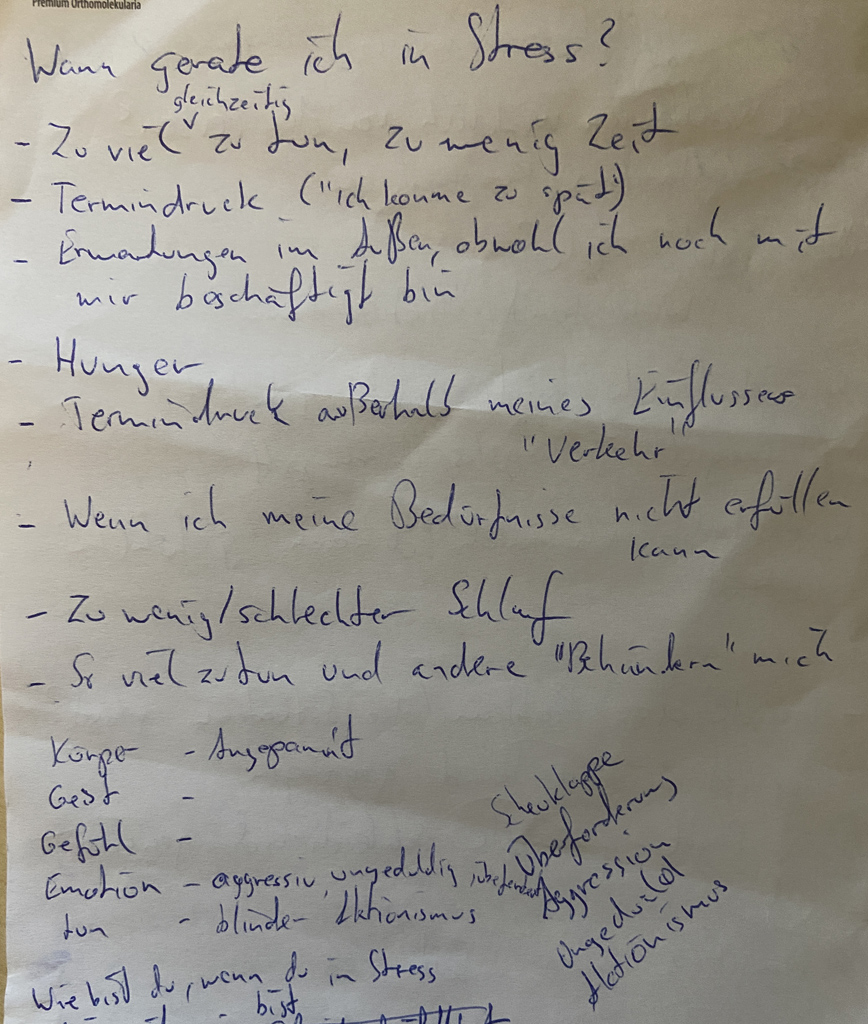 Premium Orthomolekularia
Wann gerate ich in Stress?
gleichzeitig
- Zu viel ˅ zu tun, zu wenig Zeit
- Termindruck ("ich komme zu spät)
- Erwartungen im Außen, obwohl ich noch mit
mir beschäftigt bin
- Hunger
- Termindruck außerhalb meines Einflusses
"Verkehr"
- Wenn ich meine Bedürfnisse nicht erfüllen
kann
- Zu wenig/schlechter Schlaf
- So viel zu tun und andere "Behindern" mich
Körper - Angepannt
Geist -
Gefühl -
Emotion - aggressiv, ungeduldig, überfordert
tun - blinder Aktionismus
Scheuklappe
Überforderung
Aggression
Ungeduld
Aktionismus
Wie bist du, wenn du in Stress
bist